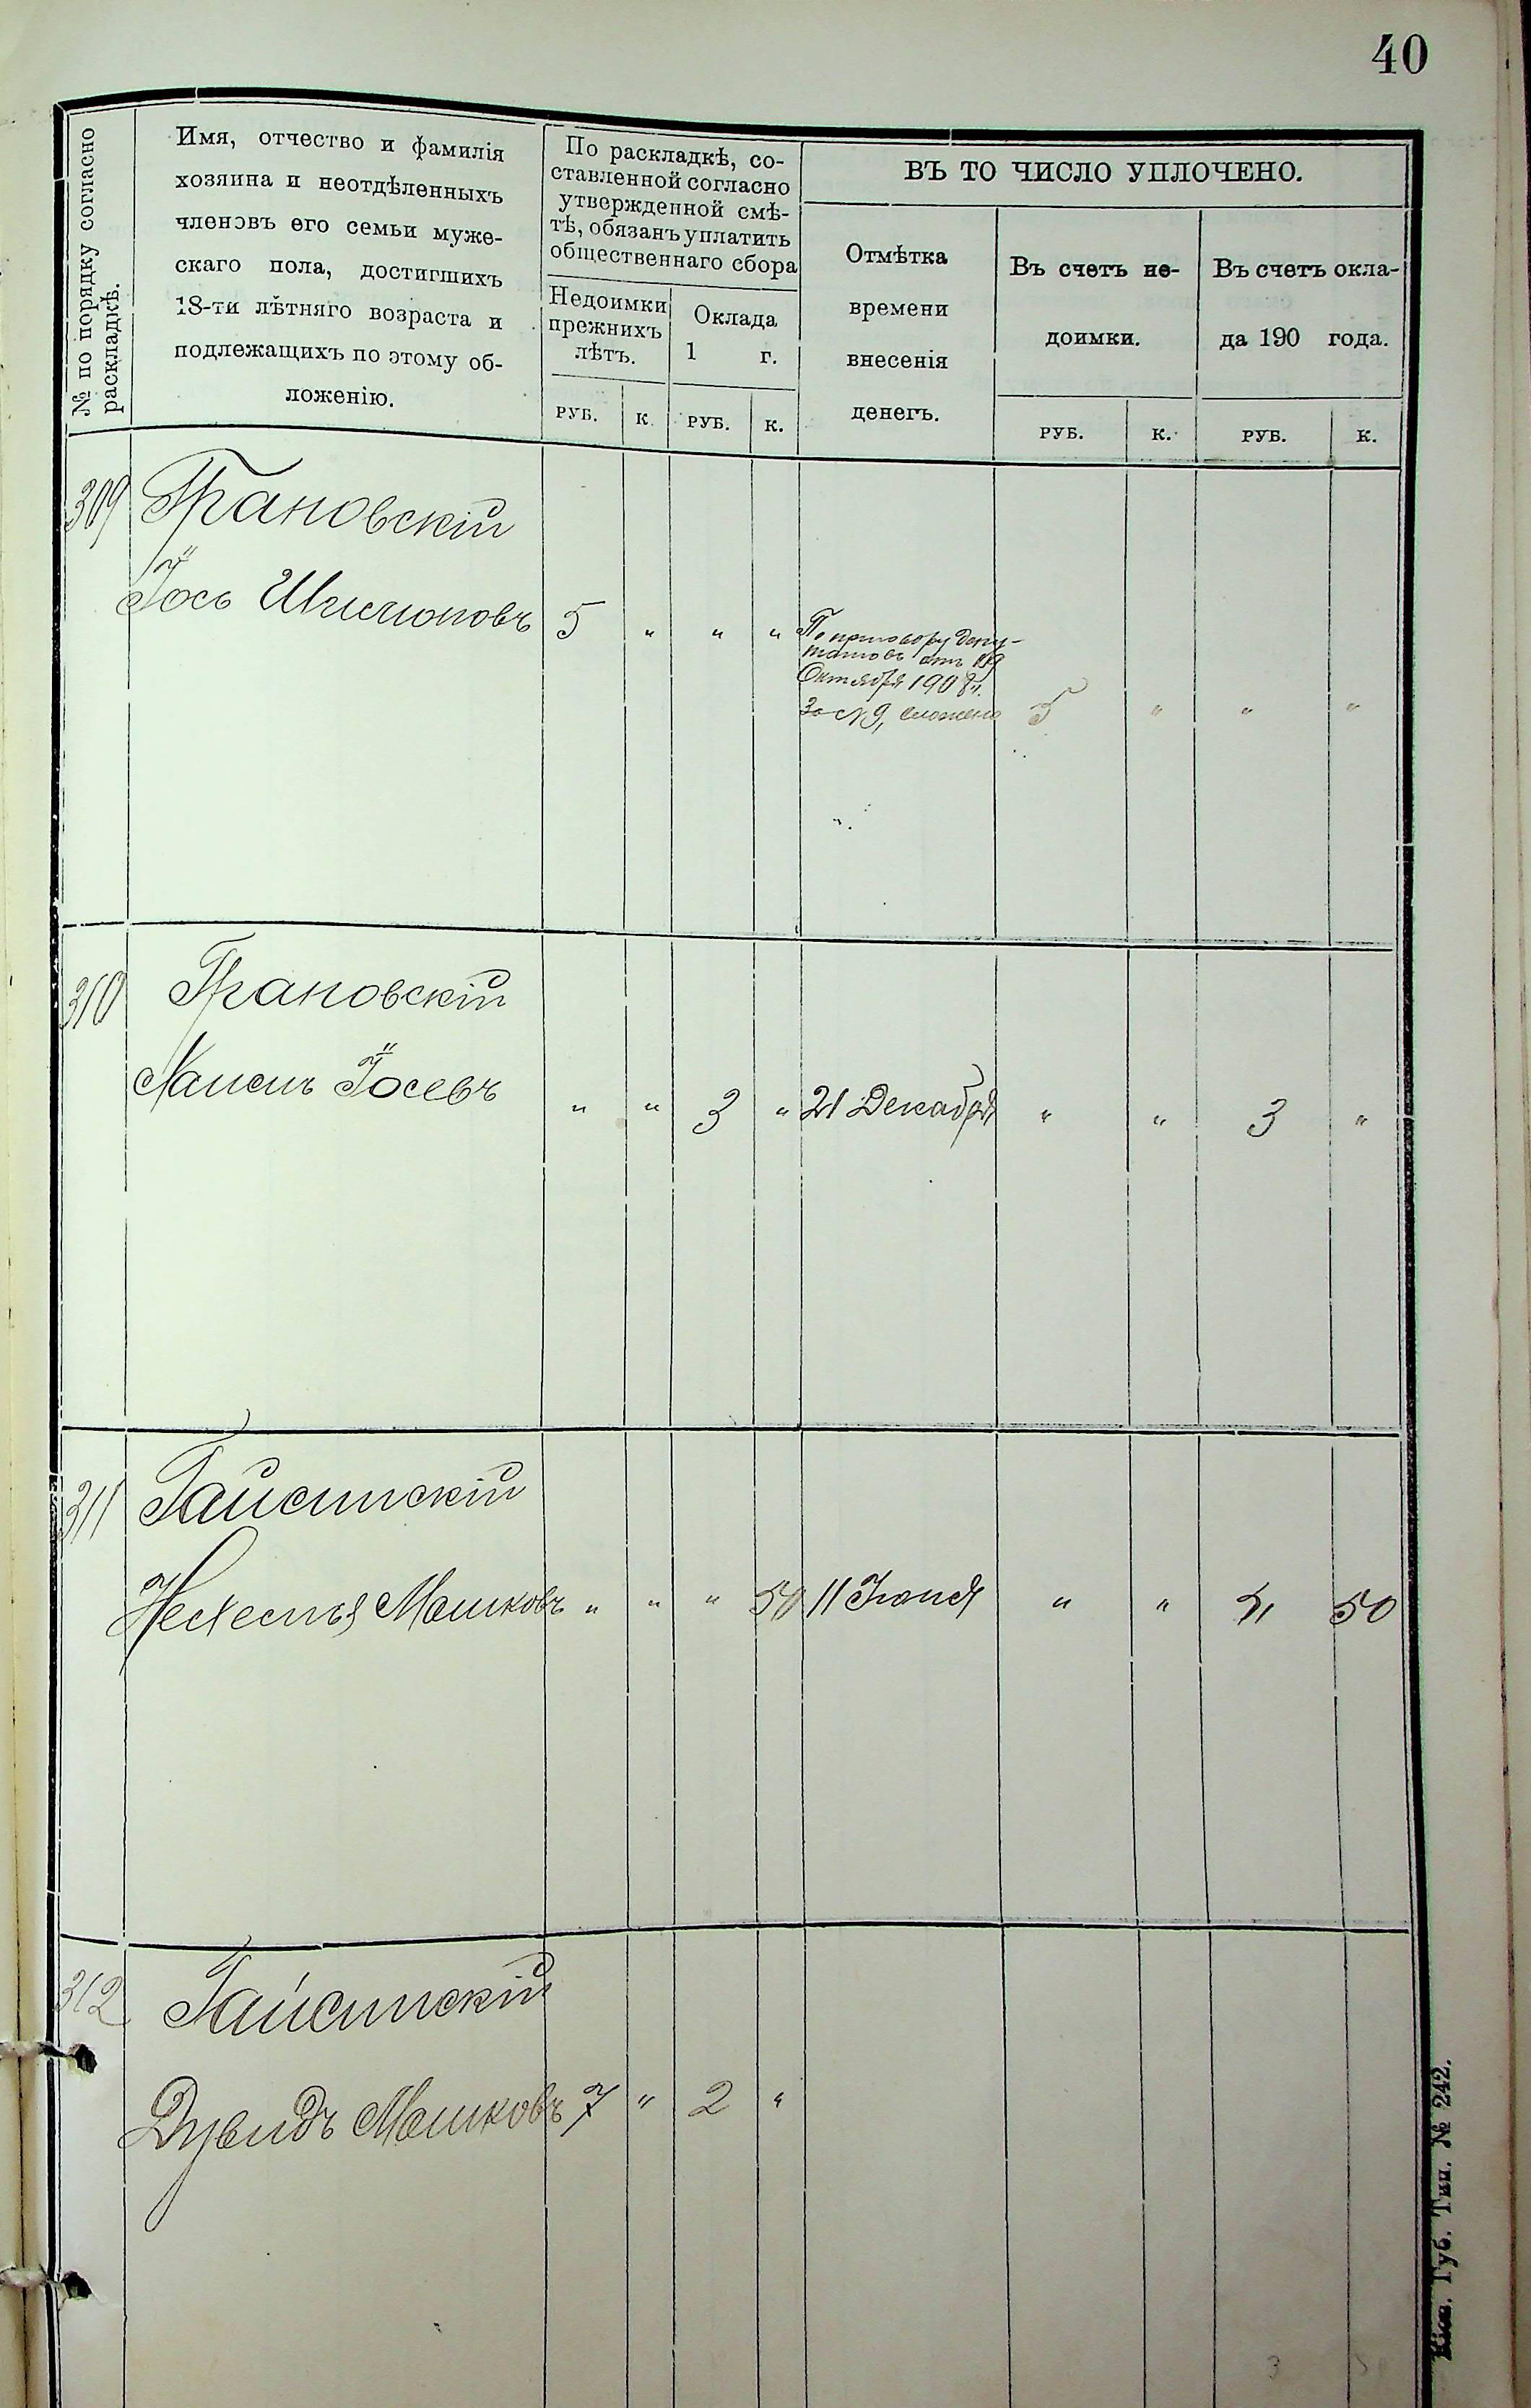 40
№ по порядку согласно
раскладкѣ.
Имя, отчество и фамилія
хозяина и неотдѣленныхъ
членовъ его семьи муже-
скаго пола, достигшихъ
18-ти лѣтняго возраста и
подлежащихъ по этому об-
ложенію.
По раскладкѣ, со-
ставленной согласно
утвержденной смѣ-
тѣ, обязанъ уплатить
общественнаго сбора
Недоимки
прежнихъ
лѣтъ.
Оклада
1 г.
РУБ. К. РУБ. К.
ВЪ ТО ЧИСЛО УПЛОЧЕНО.
Отмѣтка
времени
внесенія
денегъ.
Въ счетъ не-
доимки.
Въ счетъ окла-
да 190 года.
РУБ. К. РУБ. К.
309 Грановскій
Іось 5 " " "
По приговору депу-
татовъ отъ 19
Октября 1908 г.
за № 9, сложено 5 " " "
310 Грановскій
Іосевъ " " 3 " 21 Декабря " " 3 "
311 Гайсинскій
Мошковъ " " " 50 11 Іюня " " " 50
312 Гайсинскій
Дувидъ Мошковъ 7 " 2 "
Кіев. Губ. Тип. № 242.